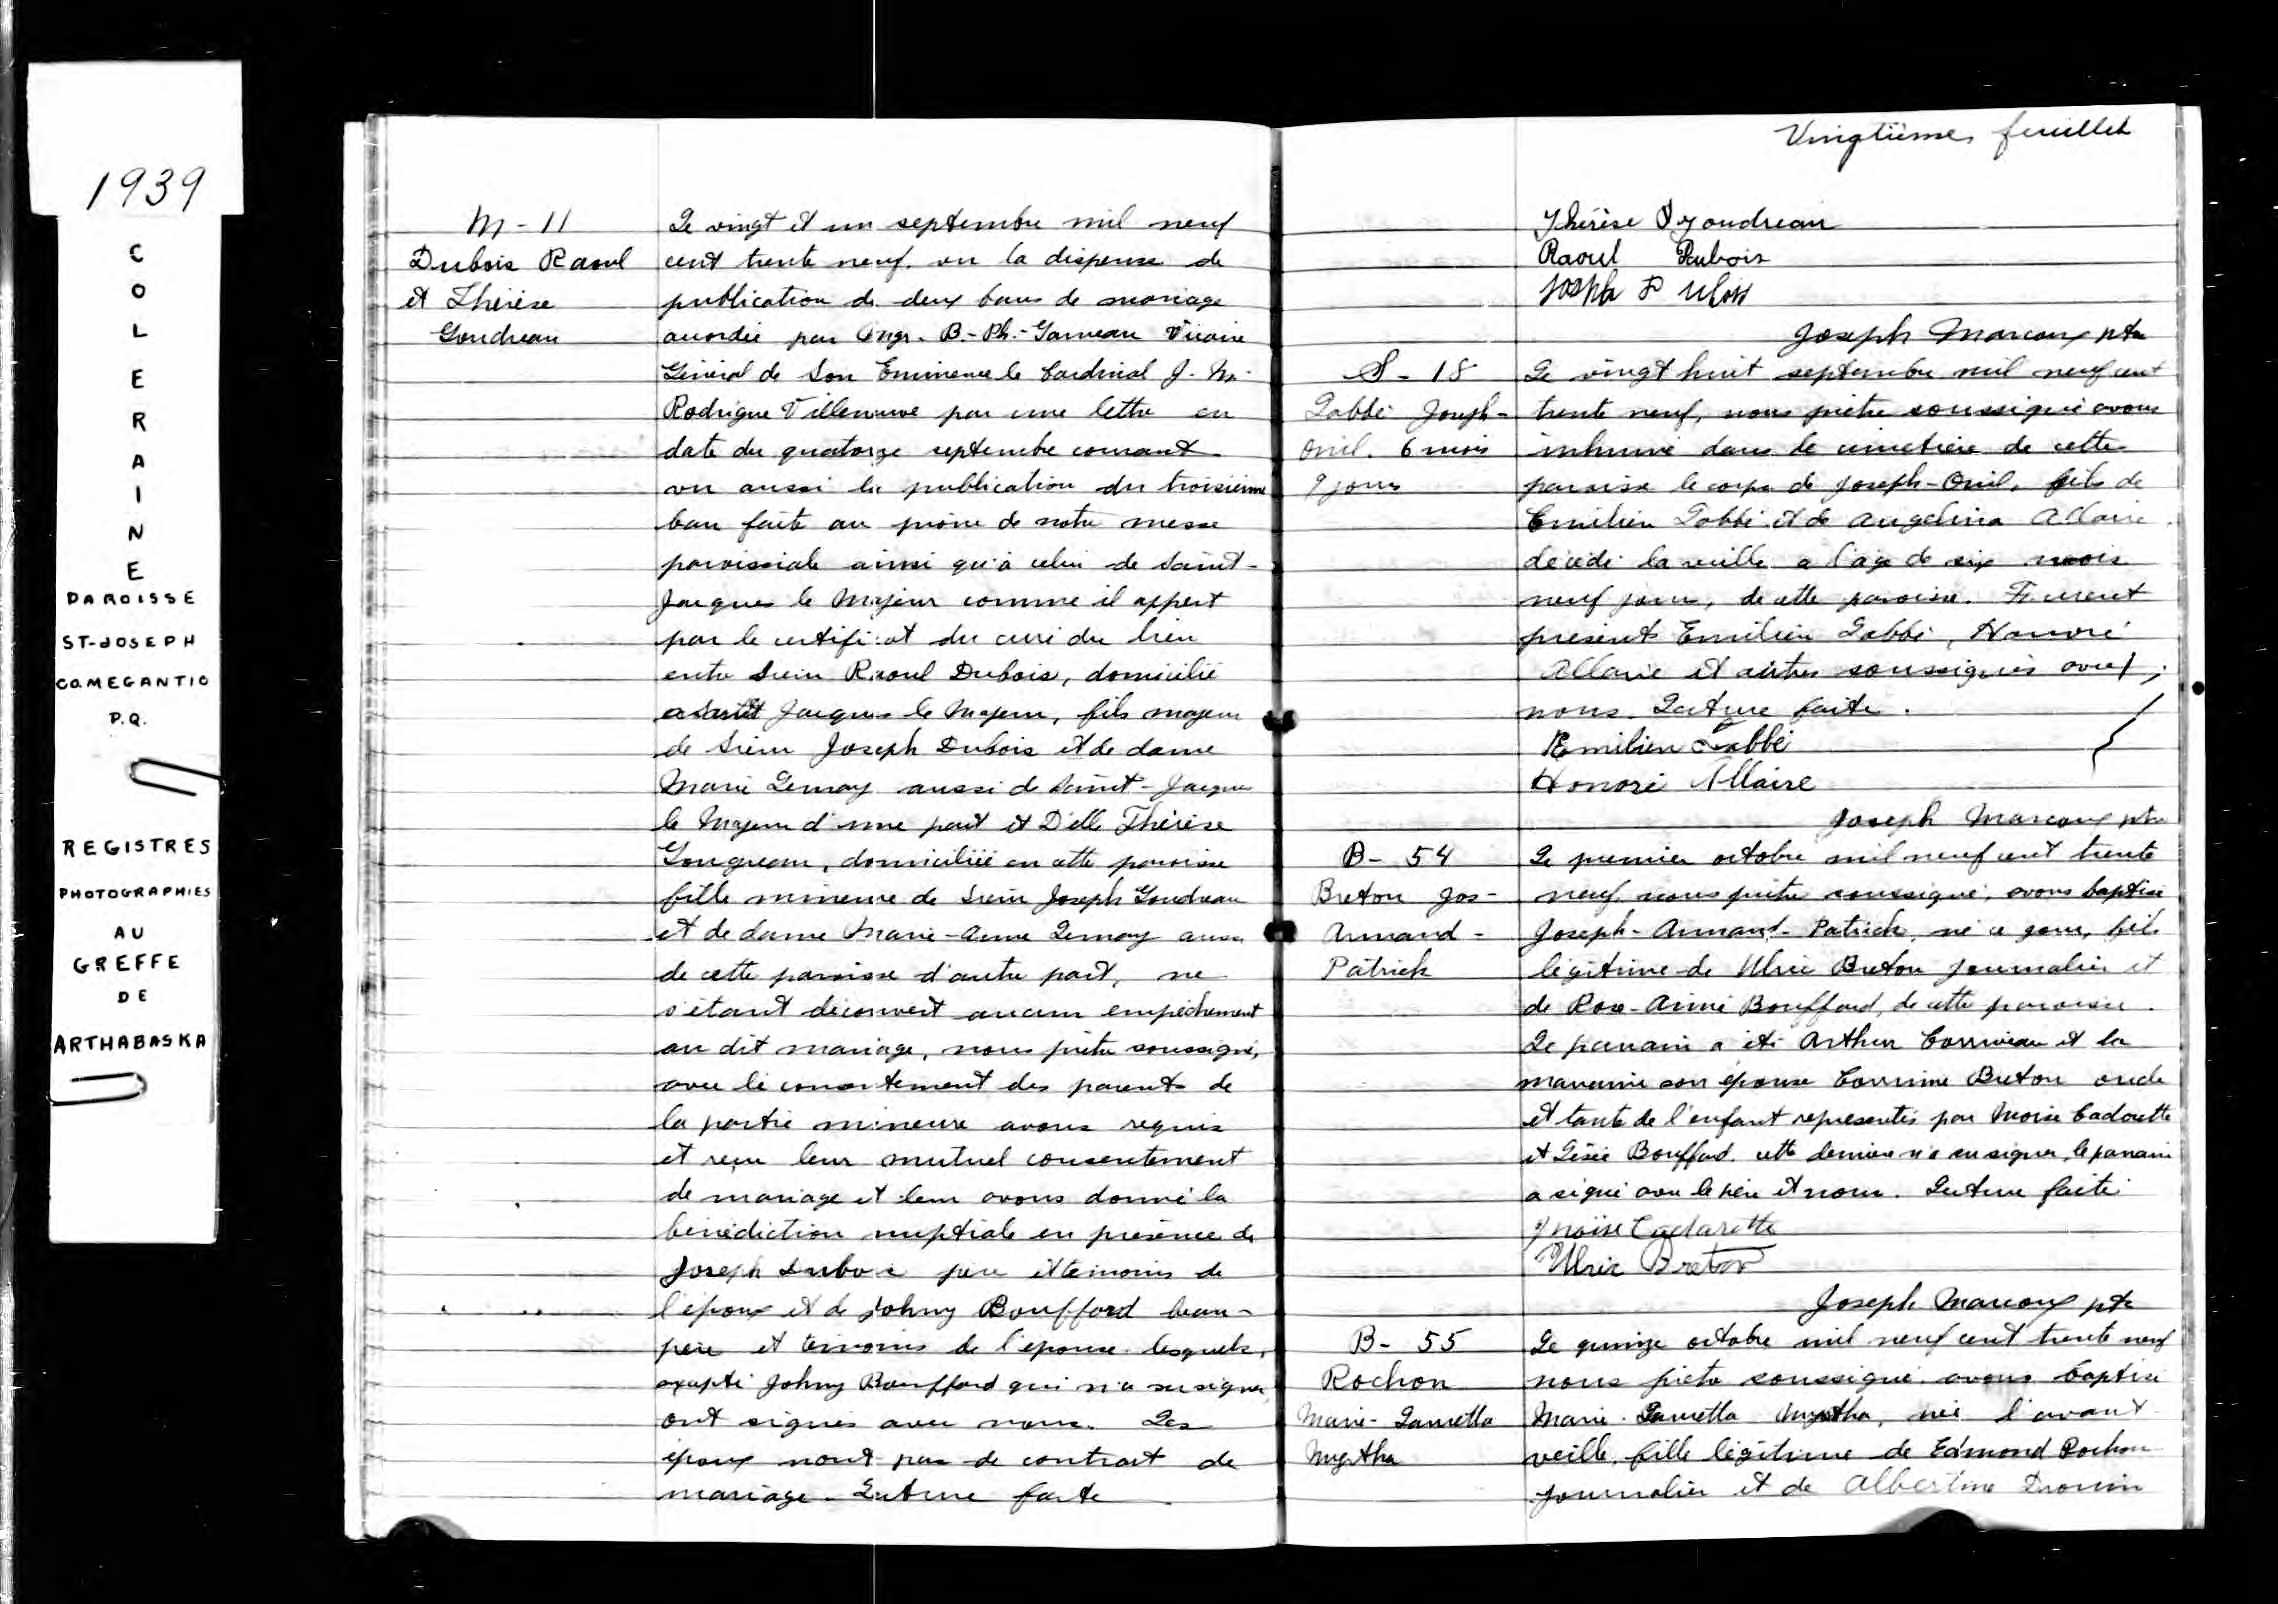 1939
COLERAINE
PAROISSE
ST-JOSEPH
CO.MEGANTIC
P.Q.
REGISTRES
PHOTOGRAPHIES
AU
GREFFE
DE
ARTHABASKA
M-11
Dubois Raoul
et Thérèse
Goudreau
Le vingt et un septembre mil neuf
cent trente neuf. vu la dispense de
publication de deux bans de mariage
accordée par Mgr. B.-Ph.-Garneau Vicaire
Général de Son Eminence le Cardinal J. M.
Rodrigue Villeneuve par une lettre en
date du quatorze septembre courant
vu aussi la publication du troisième
ban faite au prône de notre messe
paroissiale ainsi qu'à celui de Saint-
Jacques le Majeur comme il appert
par le certificat du curé du lieu
entre Sieur Raoul Dubois, domicilié
à Saint Jacques le Majeur, fils majeur
de Sieur Joseph Dubois et de dame
Marie Lemay aussi de Saint-Jacques
le Majeur d'une part et Delle Thérèse
Gougreau, domiciliée en cette paroisse
fille mineure de Sieur Joseph Goudreau
et de dame Marie-Anne Lemay aussi
de cette paroisse d'autre part, ne
s'étant découvert aucun empêchement
au dit mariage, nous prêtre soussigné,
avec le consentement des parents de
la partie mineure avons requis
et reçu leur mutuel consentement
de mariage et leur avons donné la
bénédiction nuptiale en présence de
Joseph Dubois père et témoins de
l'époux et de Johny Bouffard beau-
père et témoins de l'épouse lesquels,
excepté Johny Bouffard qui n'a su signer
ont signés avec nous. Les
époux n'ont pas de contrat de
mariage. Lecture faite
Vingtième feuillet
Thérèse Goudreau
Raoul Dubois
Joseph Dubois
Joseph Marcoux ptre
S-18
Labbé Joseph-
Onil. 6 mois
9 jours
Le vingt huit septembre mil neuf cent
trente neuf, nous prêtre soussigné avons
inhumé dans le cimetière de cette
paroisse le corps de Joseph-Onil, fils de
Emilien Labbé et de Angelina Allaire
décédé la veille a l'age de six mois
neuf jours, de cette paroisse. Furent
présents Emilien Labbé, Honoré
Allaire et autres soussignés avec
nous. Lecture faite.
Emilien Labbé
Honoré Allaire
Joseph Marcoux ptre
B-54
Breton Jos-
Armand-
Patrick
Le premier octobre mil neuf cent trente
neuf nous prêtre soussigné, avons baptisé
Joseph-Armand-Patrick, né ce jour, fils
légitime de Ulric Breton journalier et
de Rose-Aimé Bouffard, de cette paroisse.
Le parrain a été Arthur Corriveau et la
marraine son épouse Corrinne Breton oncle
et tante de l'enfant représentés par Moise Cadorette
et Bouffard. cette dernière n'a su signer, le parrain
a signé avec le père et nous. Lecture faite
Moïse Cadorette
Ulric Breton
Joseph Marcoux ptr
B-55
Rochon
Marie-Lauretta
Myrtha
Le quinze octobre mil neuf cent trente neuf
nous prêtre soussigné avons baptisé
Marie-Lauretta Myrtha, née l'avant
veille, fille légitime de Edmond Rochon
journalier et de Albertine Drouin